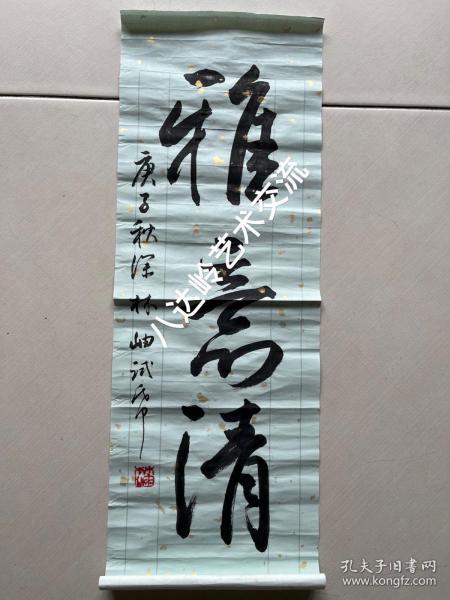 雅 清
庚子秋深林岫试帋
林岫
八达岭艺术交流
孔夫子旧书网
www.kongfz.com